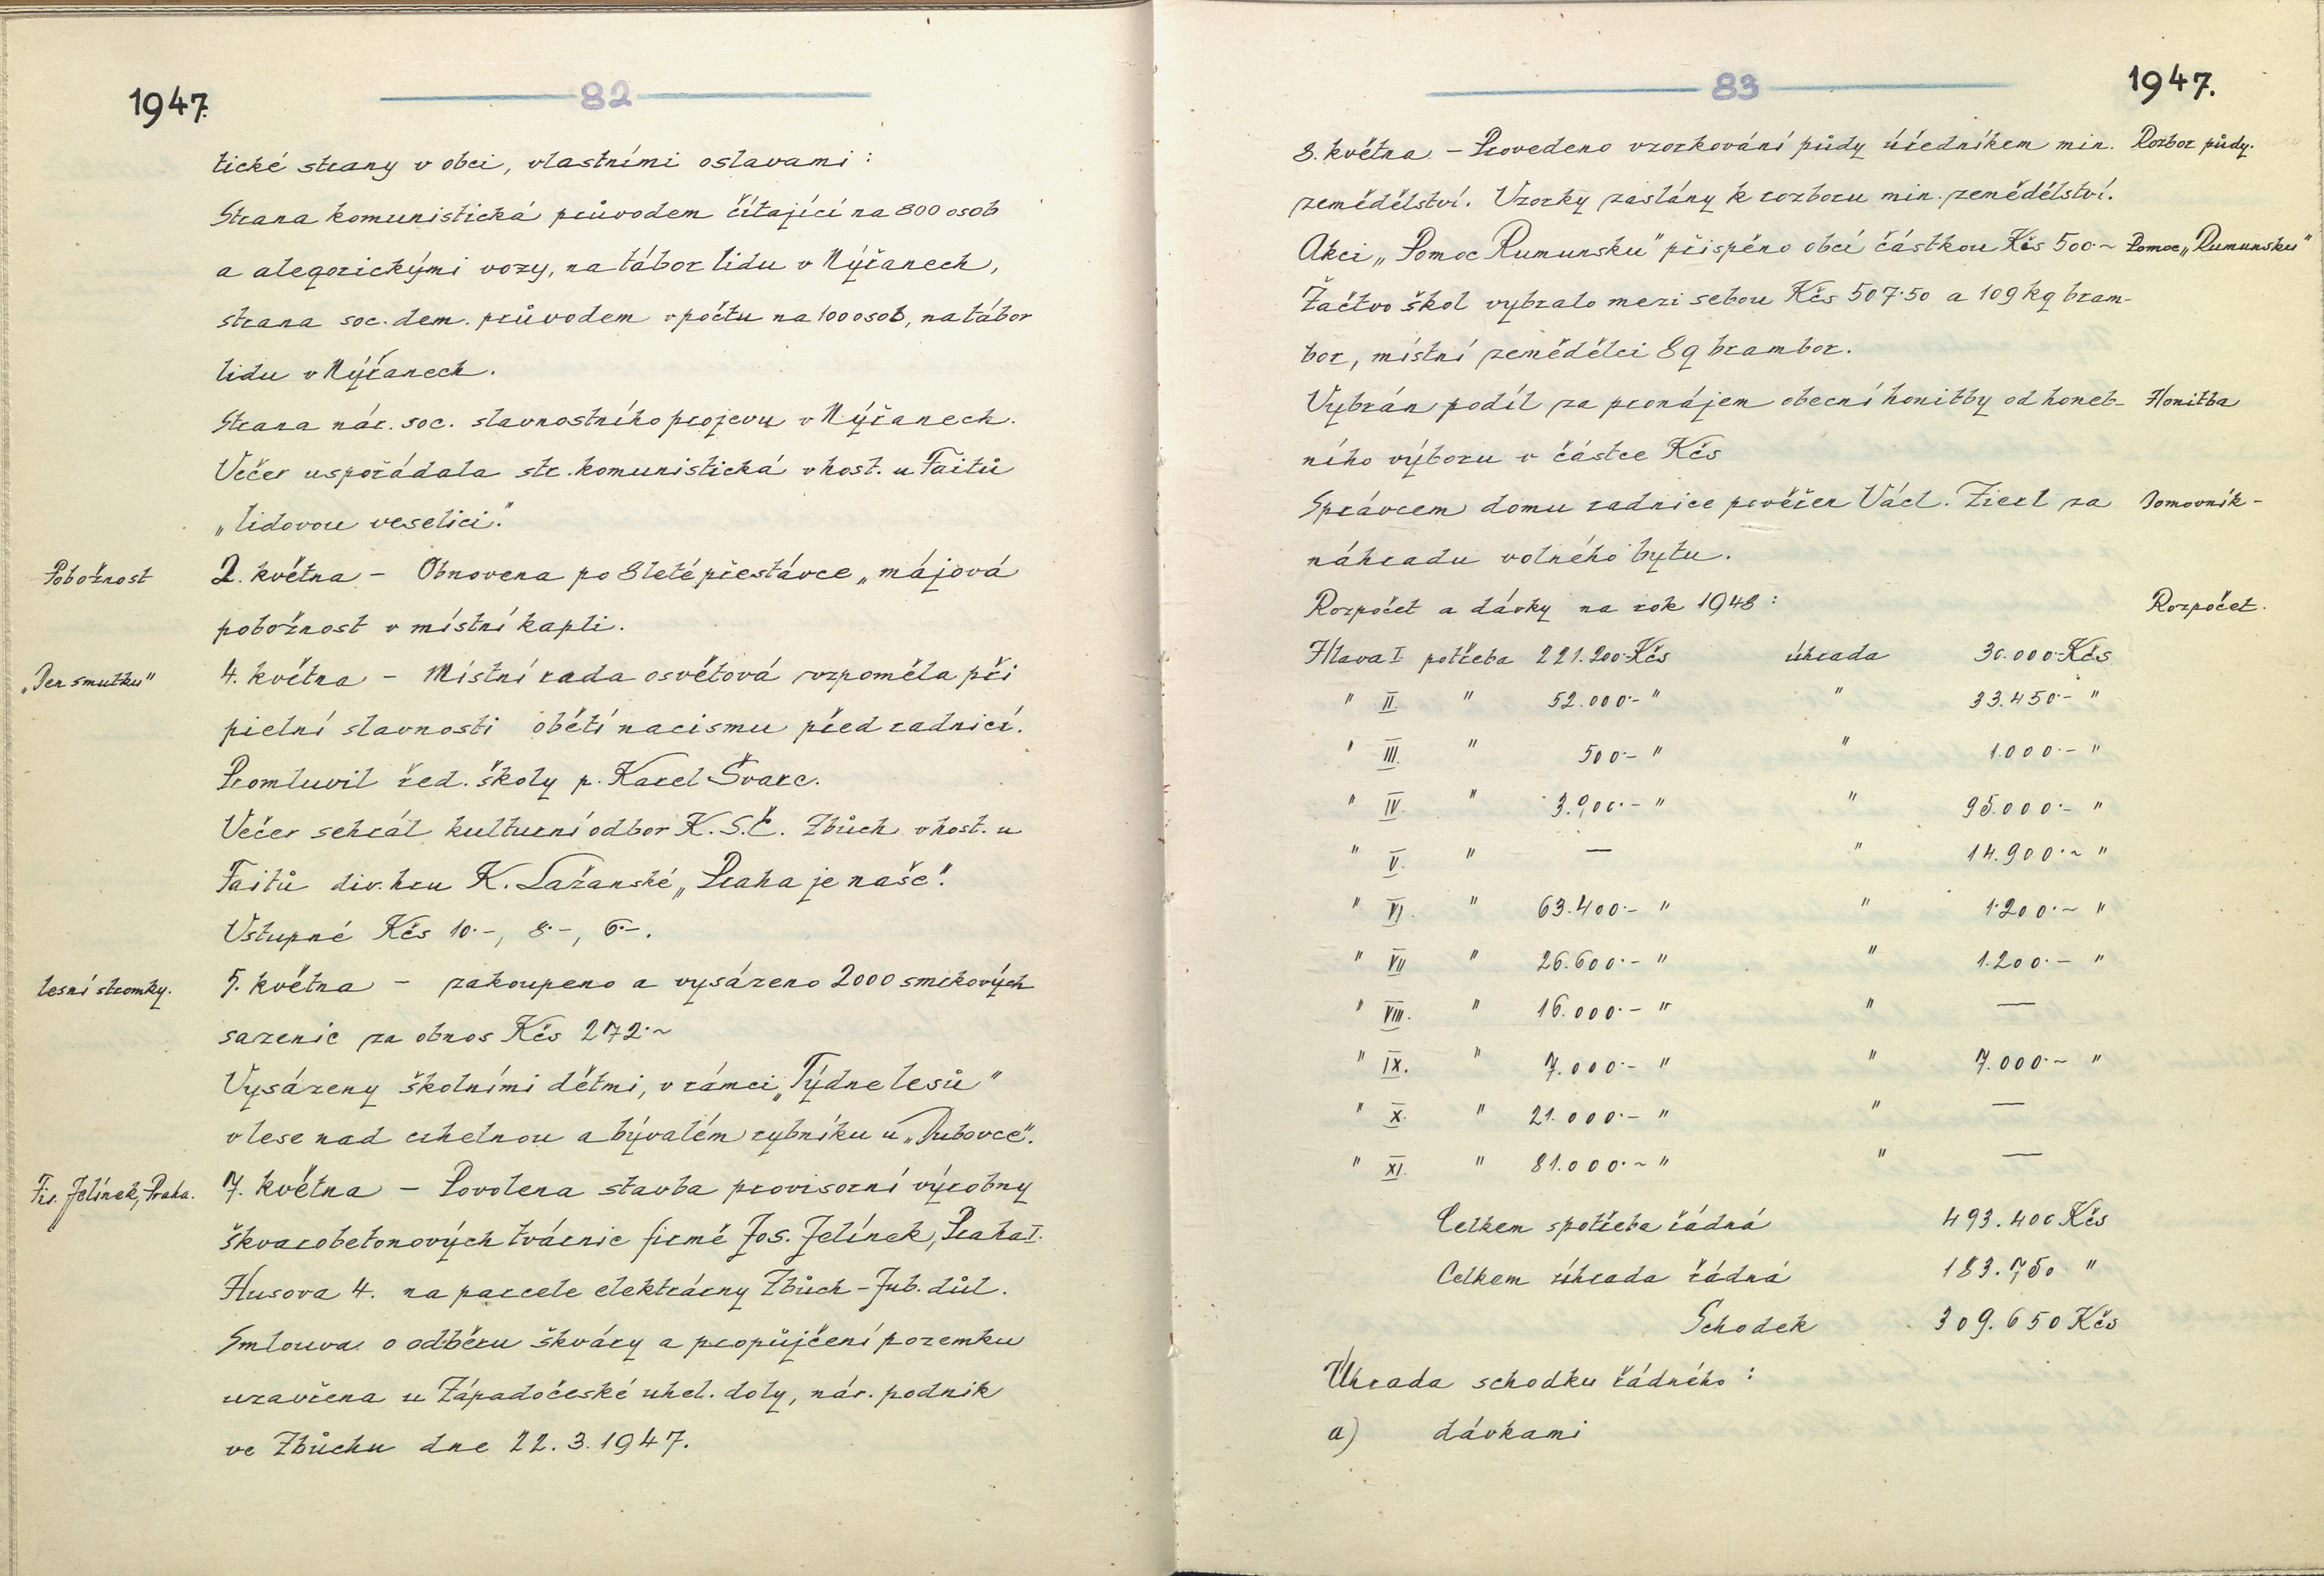 1947.
82
tické strany v obci, vlastními oslavami :
Strana komunistická průvodem čítající na 800 osob
a alegorickými vozy, na tábor lidu v Nýřanech,
strana soc. dem. průvodem v počtu na 100 osob, na tábor
lidu v Nýřanech.
Strana nár. soc. slavnostního projevu v Nýřanech.
Večer uspořádala str. komunistická v host. u Faitů
„lidovou veselici".
Pobožnost
2. května - Obnovena po 8leté přestávce „májová
pobožnost v místní kapli.
„Den smutku"
4. května - Místní rada osvětová vzpoměla při
pietní slavnosti obětí nacismu před radnicí.
Promluvil řed. školy p. Karel Švarc.
Večer sehrál kulturní odbor K.S.Č. Zbůch v host. u
Faitů div. hru K. Lažanské „Praha je naše".
Vstupné Kčs 10·-, 8·-, 6·-.
lesní stromky.
5. května - zakoupeno a vysázeno 2000 smrkových
sazenic za obnos Kčs 272·~
Vysázeny školními dětmi, v rámci „Týdne lesů"
v lese nad cihelnou a bývalém rybníku u „Dubovce".
Fir. Jelínek, Praha.
7. května - Povolena stavba provisorní výrobny
škvarobetonových tvárnic firmě Jos. Jelínek, Praha I.
Husova 4. na parcele elektrárny Zbůch - Jub. důl.
Smlouva o odběru škváry a propůjčení pozemku
uzavřena u Západočeské uhel. doly, nár. podnik
ve Zbůchu dne 22.3.1947.
83
1947.
8. května - Provedeno vzorkování půdy úředníkem min. Rozbor půdy.
zemědělství. Vzorky zaslány k rozboru min. zemědělství.
Akci „Pomoc Rumunsku" přispěno obcí částkou Kčs 500·~ Pomoc „Rumunsku"
Žactvo škol vybralo mezi sebou Kčs 507·50 a 109 kg bram-
bor, místní zemědělci 8 q brambor.
Vybrán podíl za pronájem obecní honitby od honeb- Honitba
ního výboru v částce Kčs
Správcem domu radnice pověřen Václ. Zierl za Domovník -
náhradu volného bytu.
Rozpočet a dávky na rok 1948 : Rozpočet.
Hlava I potřeba 221.200·Kčs úhrada 30.000·Kčs
" II. " 52.000·- " " 33.450·- "
" III. " 500·- " " 1.000·- "
" IV. " 3.900·- " " 95.000·- "
" V. " — " 14.900·~ "
" VI. " 63.400·- " " 1.200·~ "
" VII " 26.600·- " " 1.200·- "
" VIII. " 16.000·- " " —
" IX. " 7.000·- " " 7.000·~ "
" X. " 21.000·- " " —
" XI. " 81.000·~ " " —
Celkem spotřeba řádná 493.400 Kčs
Celkem úhrada řádná 183.750 "
Schodek 309.650 Kčs
Úhrada schodku řádného :
a) dávkami